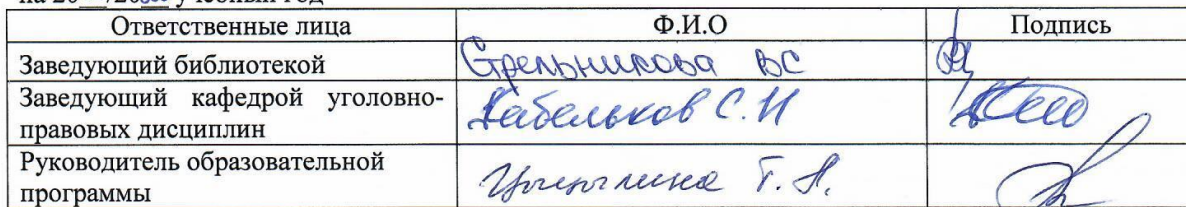 на 20__/20__ учебный год
Ответственные лица Ф.И.О Подпись
Заведующий библиотекой Стрельникова ВС
Заведующий кафедрой уголовно-
правовых дисциплин Кабельков С.Н
Руководитель образовательной
программы Т.